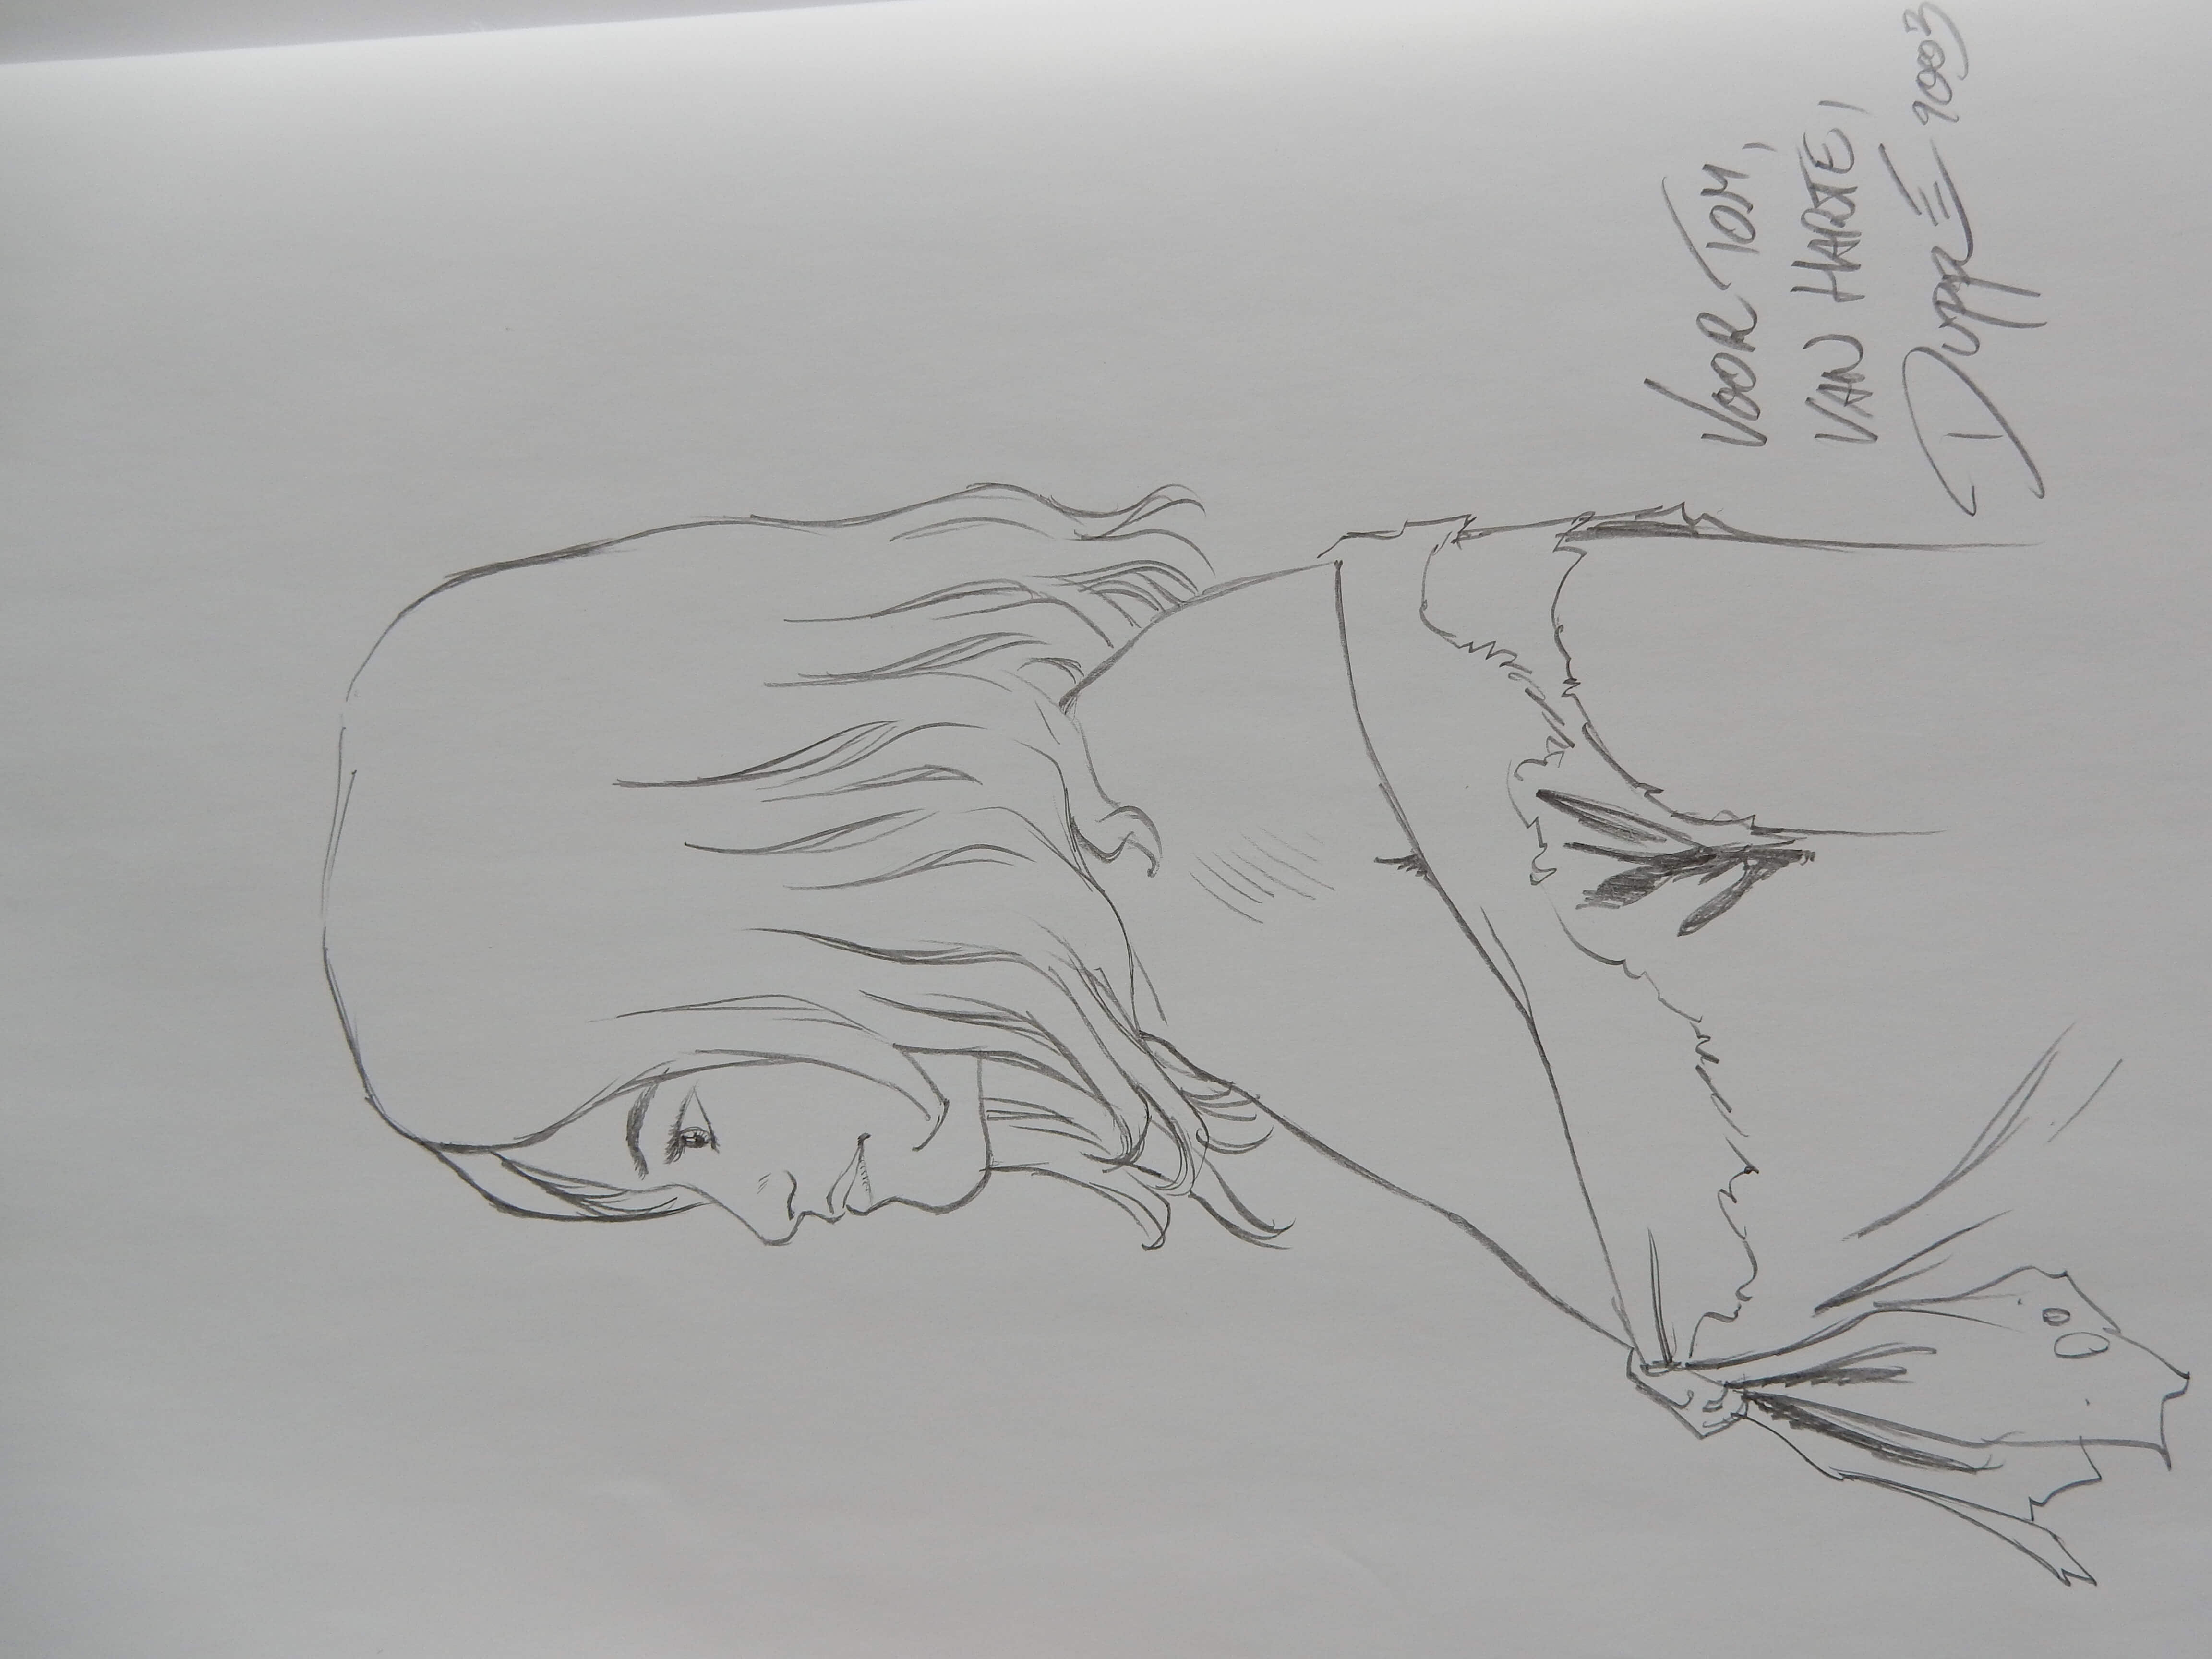 VOOR TOM,
VAN HARTE,
DUPRÉ